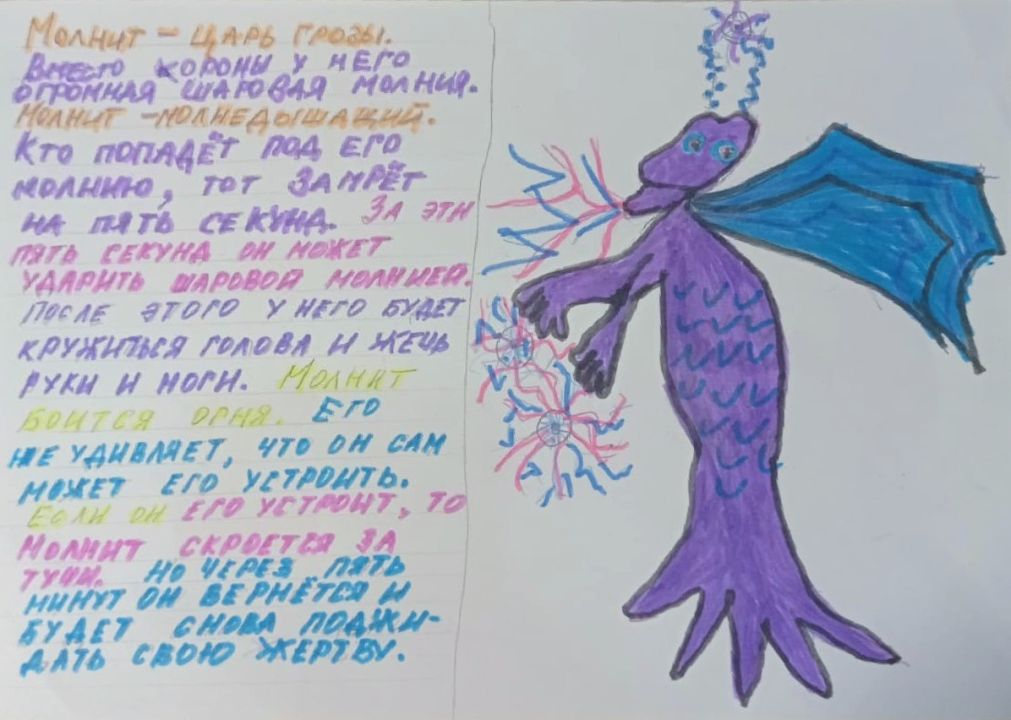 Молнит – царь грозы.
Вместо короны у него
огромная шаговая молния.
Молнит – молнедышащий.
Кто попадёт под его
молнию, тот замрёт
на пять секунд. За эти
пять секунд он может
ударить шаровой молнией.
После этого у него будет
кружиться голова и жечь
руки и ноги. Молнит
боится огня. Его
не удивляет, что он сам
может его устроить.
Если он его устроит, то
Молнит скроется за
тучи. Но через пять
минут он вернётся и
будет снова поджи-
дать свою жертву.